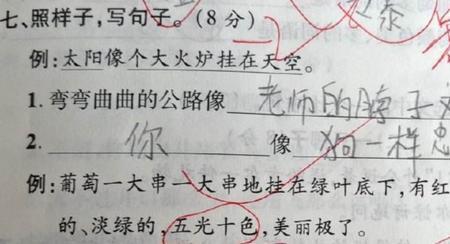 七、照样子,写句子。(8分)
例:太阳像个大火炉挂在天空。
1. 弯弯曲曲的公路像 老师的脖子
2. 你 像 狗一样忠
例:葡萄一大串一大串地挂在绿叶底下,有红
的、淡绿的,五光十色,美丽极了。